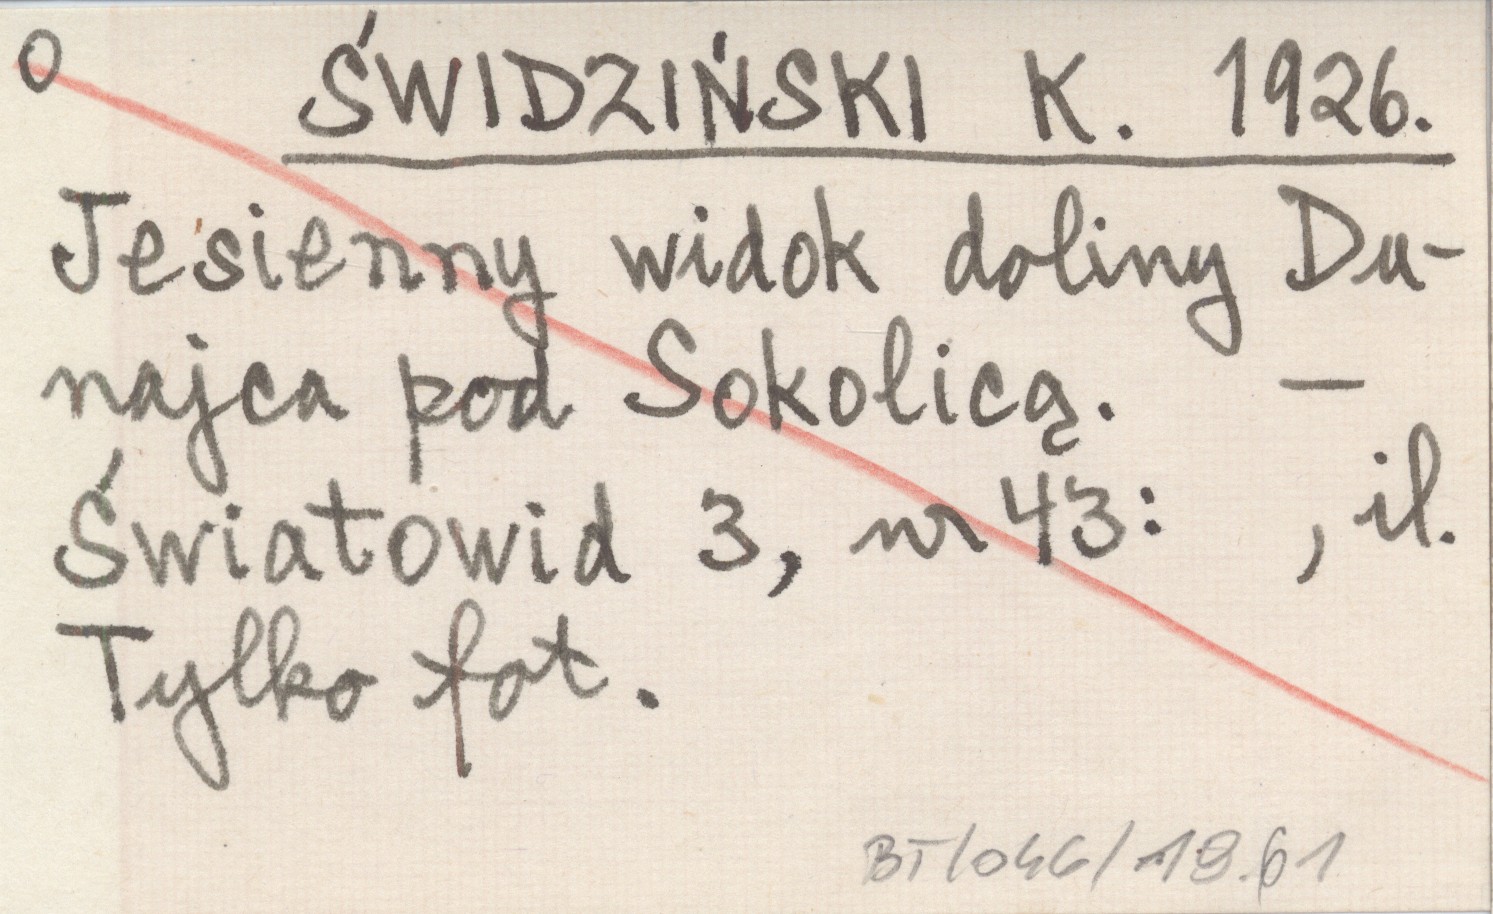 O
ŚWIDZIŃSKI K. 1926.
Jesienny widok doliny Du-
najca pod Sokolicą. —
Światowid 3, nr 43: , il.
Tylko fot.
BT/046/19.61